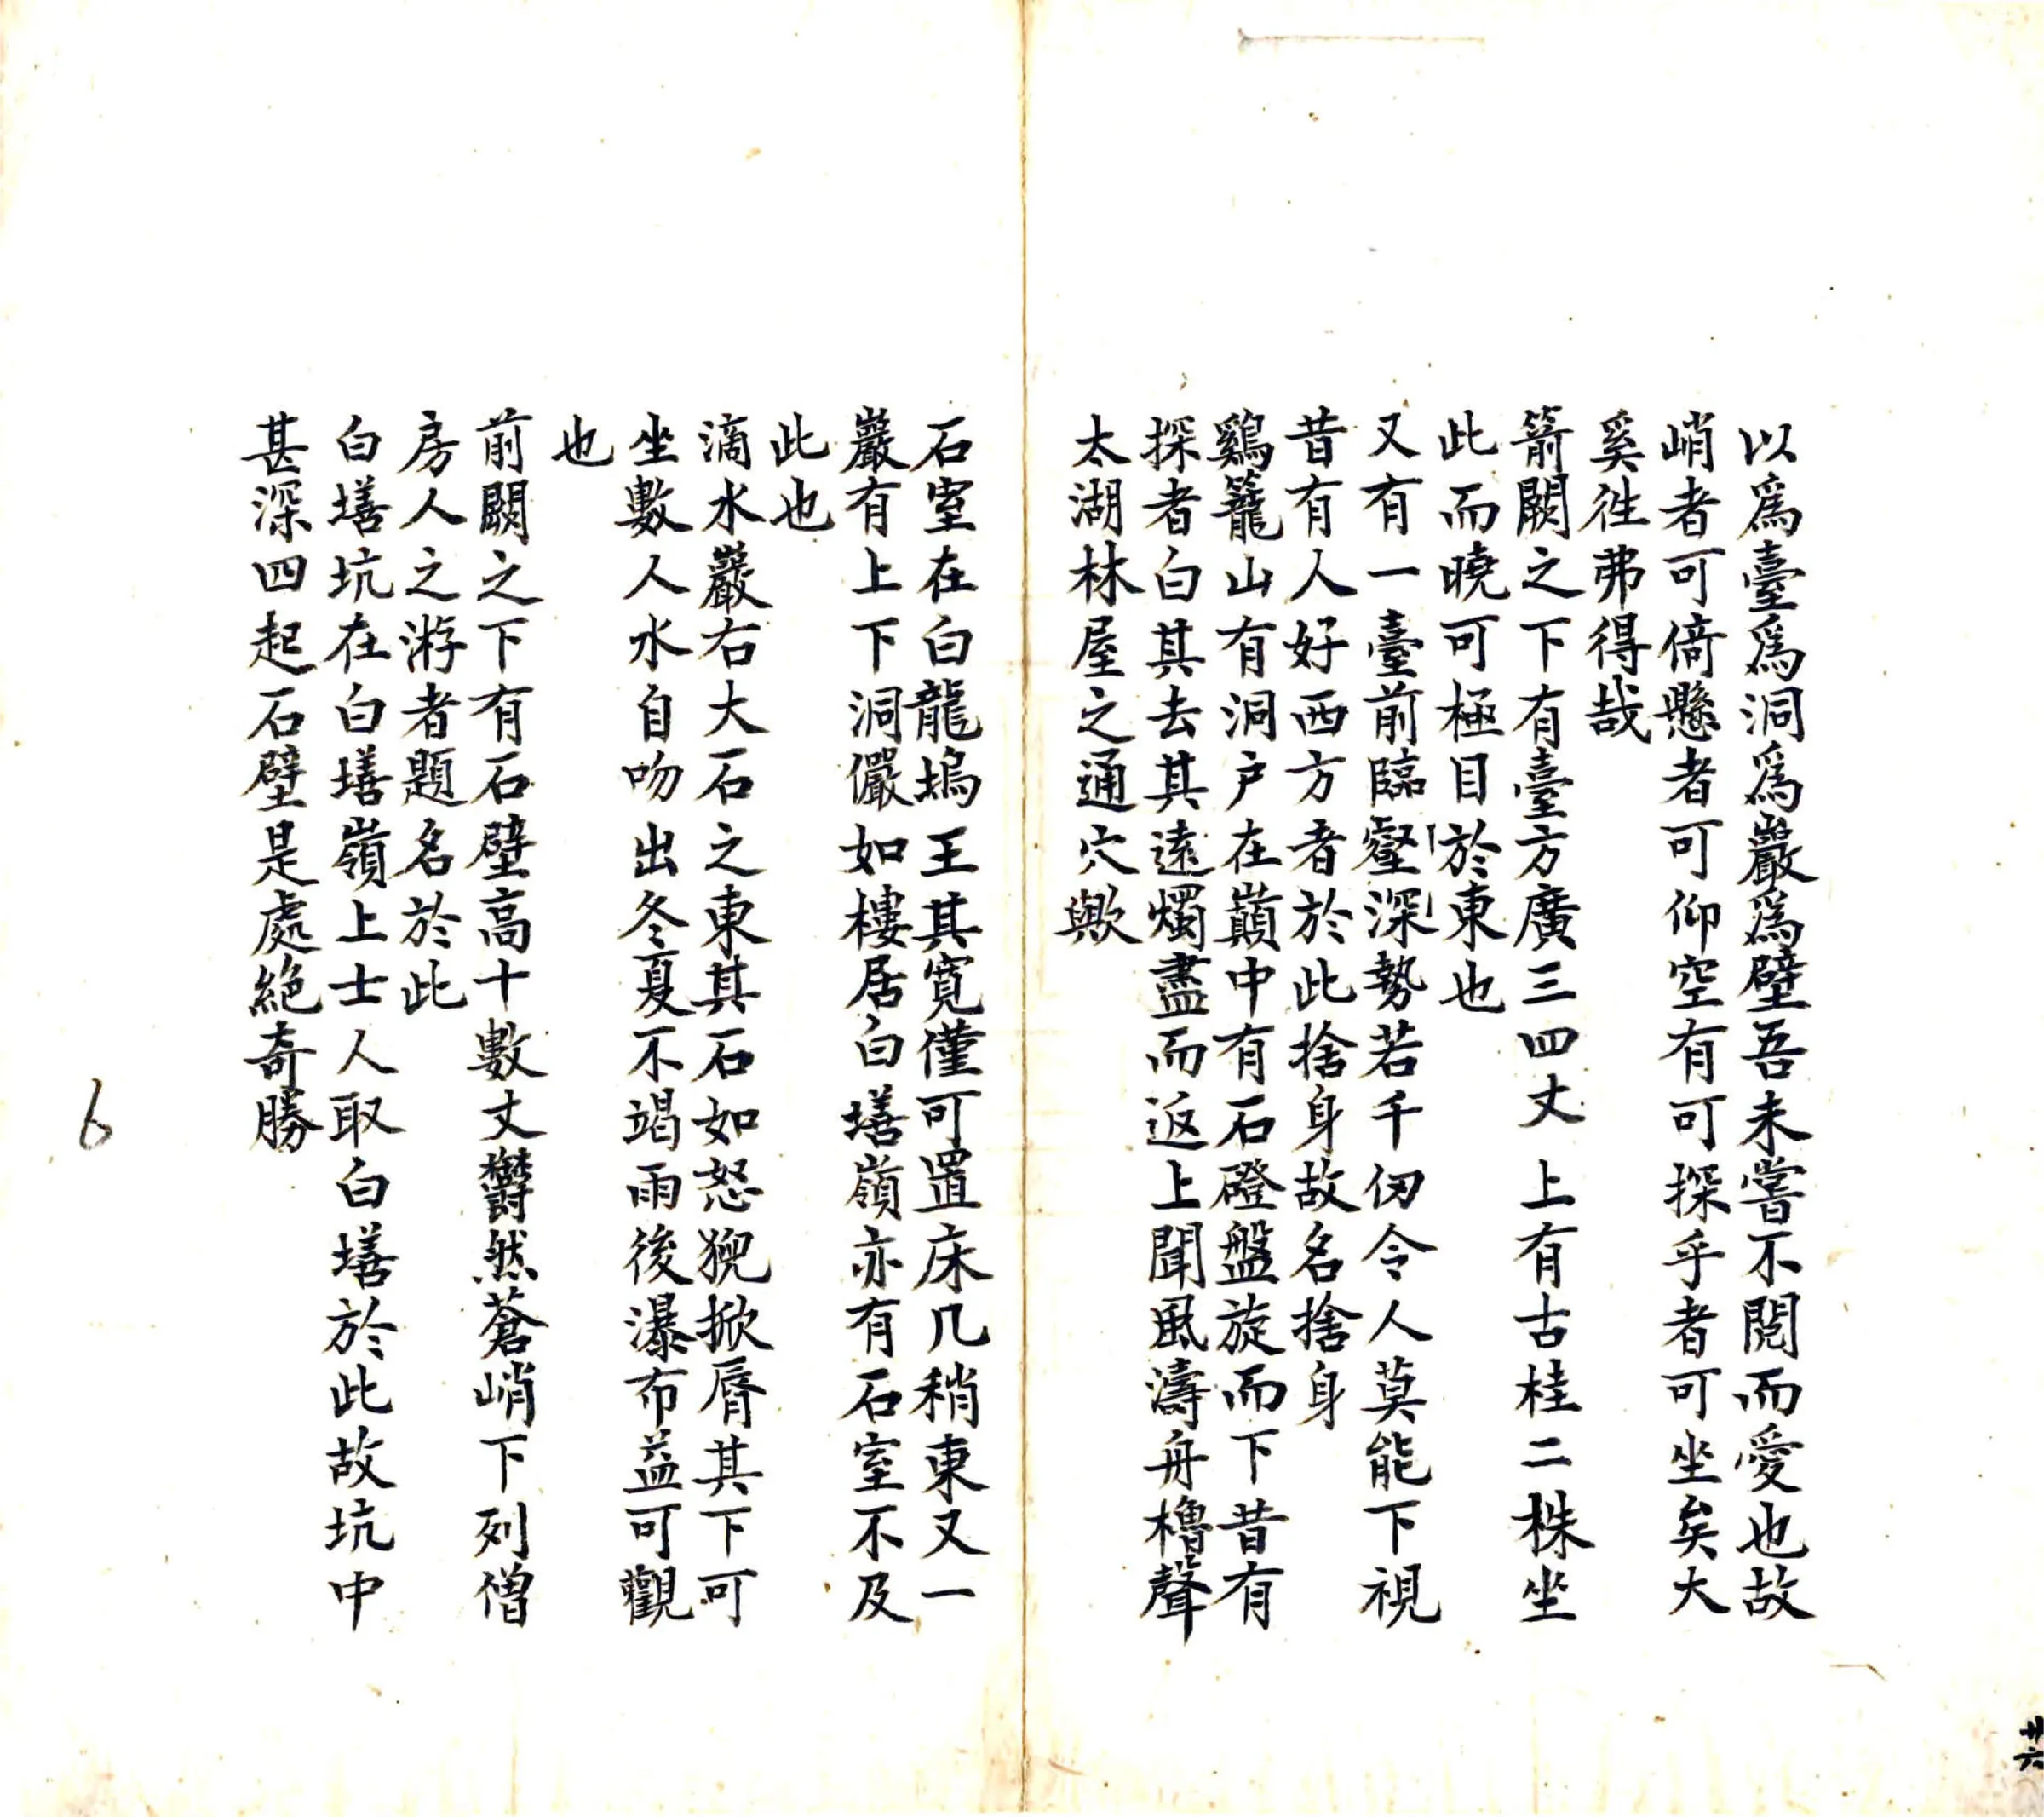 以爲臺爲洞爲巖爲壁吾未嘗不閱而愛也故
峭者可倚懸者可仰空有可探乎者可坐矣大
奚徃弗得哉
箭闕之下有臺方廣三四丈上有古桂二株坐
此而曉可極目於東也
又有一臺前臨壑深勢若千仞令人莫能下視
昔有人好西方者於此捨身故名捨身
鷄籠山有洞戶在巔中有石磴盤旋而下昔有
探者白其去其遠燭盡而返上聞風濤舟櫓聲
太湖林屋之通穴歟
石室在白龍塢王其寬僅可置床几稍東又一
巖有上下洞儼如樓居白墡嶺亦有石室不及
此也
滴水巖右大石之東其石如怒猊掀脣其下可
坐數人水自吻出冬夏不竭雨後瀑布益可觀
也
前闕之下有石壁高十數丈欝然蒼峭下列僧
房人之游者題名於此
白墡坑在白墡嶺上士人取白墡於此故坑中
甚深四起石壁是處絶奇勝
6
廿六